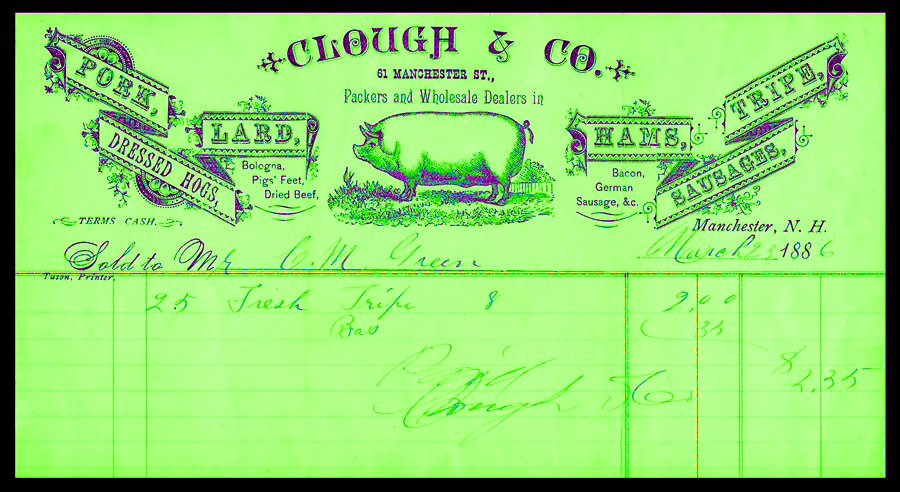 CLOUGH & CO.
61 MANCHESTER ST.,
Packers and Wholesale Dealers in
PORK,
DRESSED HOGS,
LARD,
Bologna,
Pigs' Feet,
Dried Beef,
HAMS,
Bacon,
German
Sausage, &c.
TRIPE,
SAUSAGES.
TERMS CASH.
Manchester, N. H.
March 23 1886
Sold to Mr C. M. Green
Tuson, Printer.
25 Fresh Tripe 8 2,00
35
$ 2.35
Clough & Co